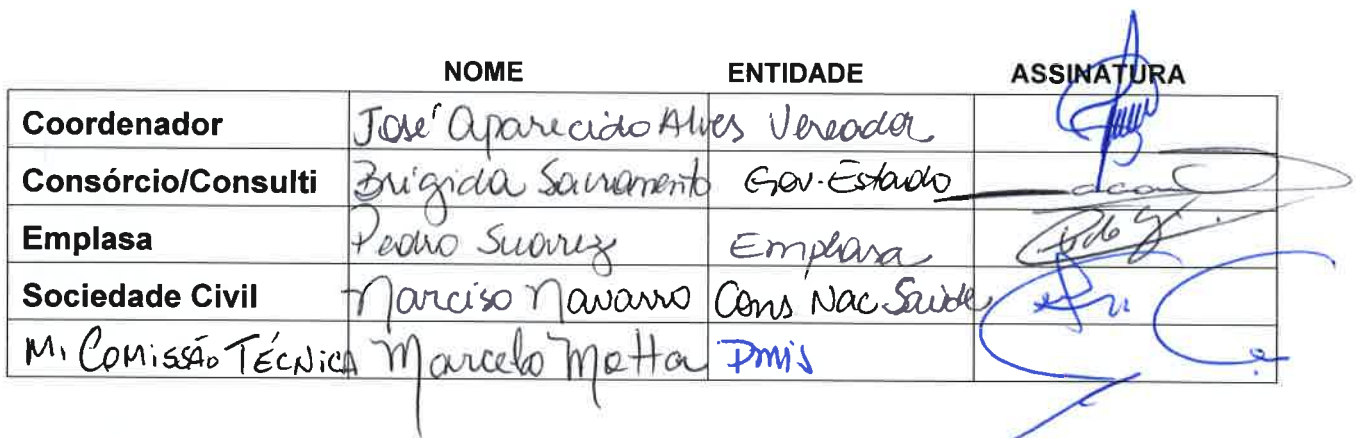 NOME ENTIDADE ASSINATURA
Coordenador José Aparecido Alves Vereador
Consórcio/Consulti Brigida Sacramento Gov. Estado
Emplasa Pedro Suarez Emplasa
Sociedade Civil Narciso Navarro Cons Nac Saúde
M. COMISSÃO TÉCNICA Marcelo Motta PMIS